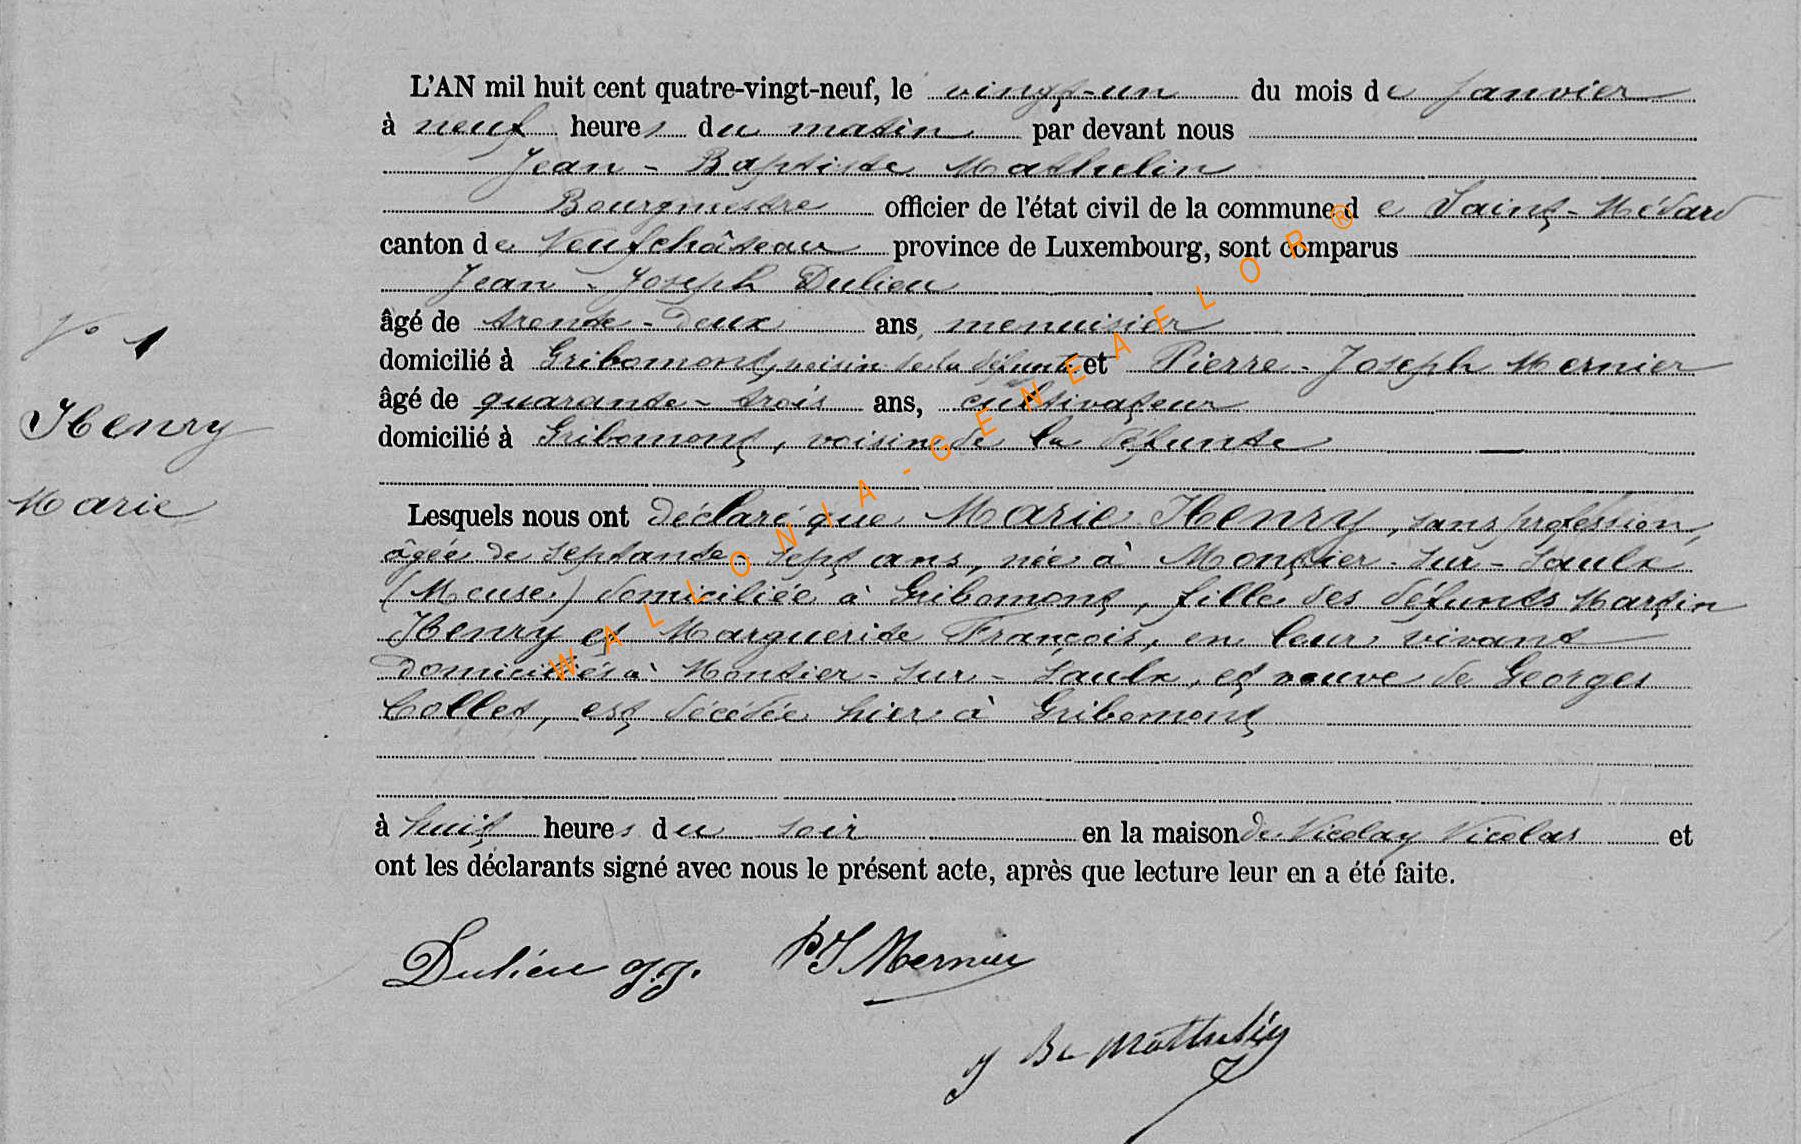 L'AN mil huit cent quatre-vingt-neuf, le vingt-un du mois de Janvier
à neuf heures du matin par devant nous
Jean-Baptiste Mathelin
Bourgmestre officier de l'état civil de la commune de Saint-Médard
canton de Neufchâteau province de Luxembourg, sont comparus
Jean-Joseph Dulieu
âgé de trente-deux ans, menuisier
N° 1
domicilié à Gribomont, voisin de la défunte et Pierre-Joseph Mernier
âgé de quarante-trois ans, cultivateur
Henry
domicilié à Gribomont, voisin de la défunte
Marie
Lesquels nous ont déclaré que Marie Henry, sans profession,
âgée de septante-sept ans, née à Montier-sur-Saulx
(Meuse) domiciliée à Gribomont, fille des défunts Martin
Henry et Marguerite François, en leur vivant
domiciliés à Montier-sur-Saulx, et veuve de Georges
Collet, est décédée hier à Gribomont
à huit heures du soir en la maison de Nicolay Nicolas et
ont les déclarants signé avec nous le présent acte, après que lecture leur en a été faite.
Dulieu J.J. PJ Mernier
J Bte Mathelin
WALLONIA-GENEAELOR®